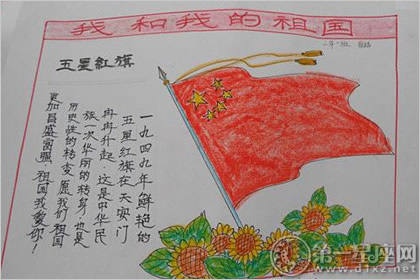 我和我的祖国
二年一班
五星红旗
一九四九年鲜艳的
五星红旗在天安门
冉冉升起 这是中华民
族一次华丽的转身，也是
历史性的转变，愿我们祖国
更加昌盛富强 祖国我爱你！
第一星座网
www.d1xz.net